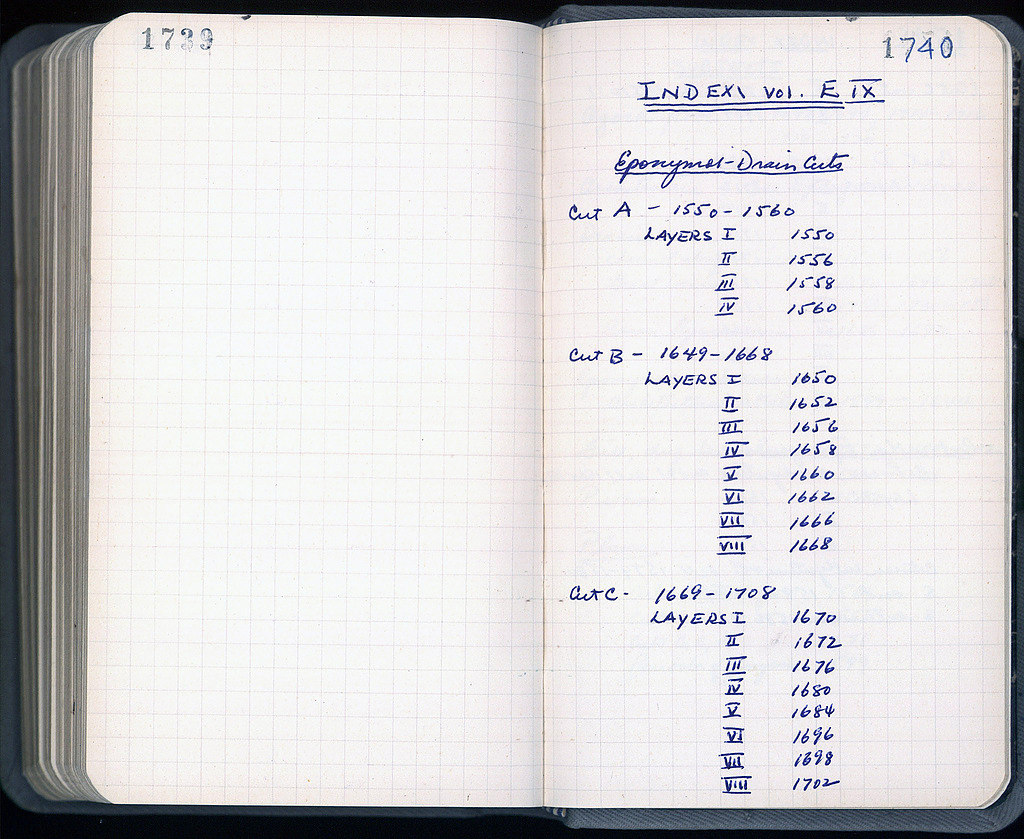 1739
1740
INDEX\ vol. E IX
Eponymoi-Drain Cuts
Cut A - 1550-1560
LAYERS I 1550
II 1556
III 1558
IV 1560
Cut B - 1649-1668
LAYERS I 1650
II 1652
III 1656
IV 1658
V 1660
VI 1662
VII 1666
VIII 1668
Cut C- 1669-1708
LAYERS I 1670
II 1672
III 1676
IV 1680
V 1684
VI 1696
VII 1698
VIII 1702